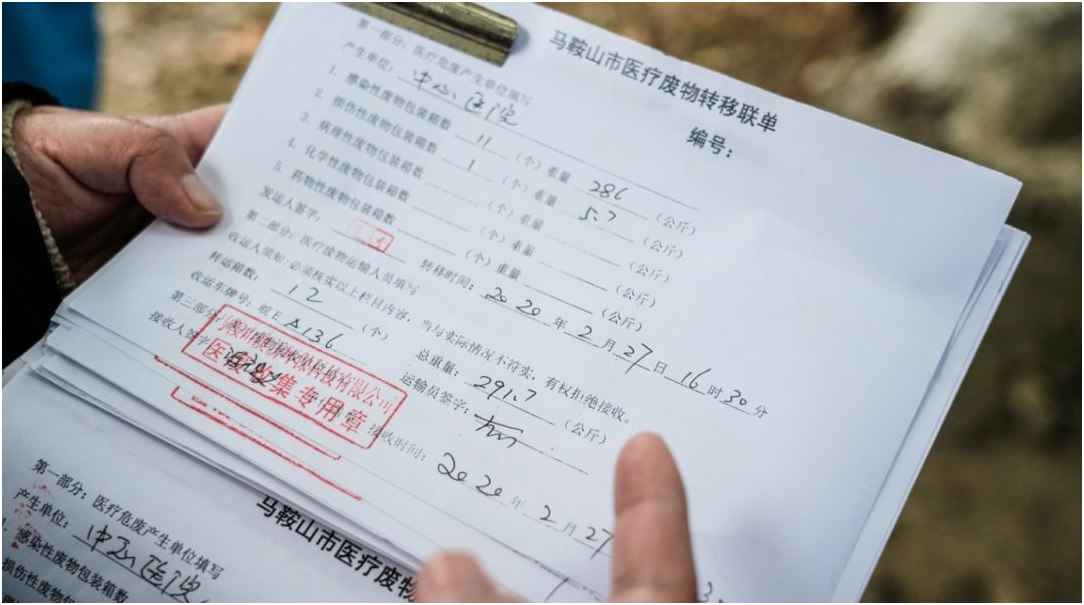 马鞍山市医疗废物转移联单
编号：
第一部分：医疗危废产生单位填写
产生单位：中心医院
1. 感染性废物包装箱数 11 （个）重量 286 （公斤）
2. 损伤性废物包装箱数 1 （个）重量 5.7 （公斤）
3. 病理性废物包装箱数 （个）重量 （公斤）
4. 化学性废物包装箱数 （个）重量 （公斤）
5. 药物性废物包装箱数 （个）重量 （公斤）
发运人签字： 转移时间：2020年2月27日16时30分
第二部分：医疗废物运输人员填写
收运人须知：必须核实以上栏目内容，当与实际情况不符实，有权拒绝接收。
转运箱数：12 （个） 总重量：291.7 （公斤）
收运车牌号：皖E A136 运输员签字：
第三部分：
接收人签字 接收时间：2020年2月27
科技有限公司
医 集专用章
马鞍山市医疗废
第一部分：医疗危废产生单位填写
产生单位：中心医院
感染性废物包装箱数
损伤性废物包